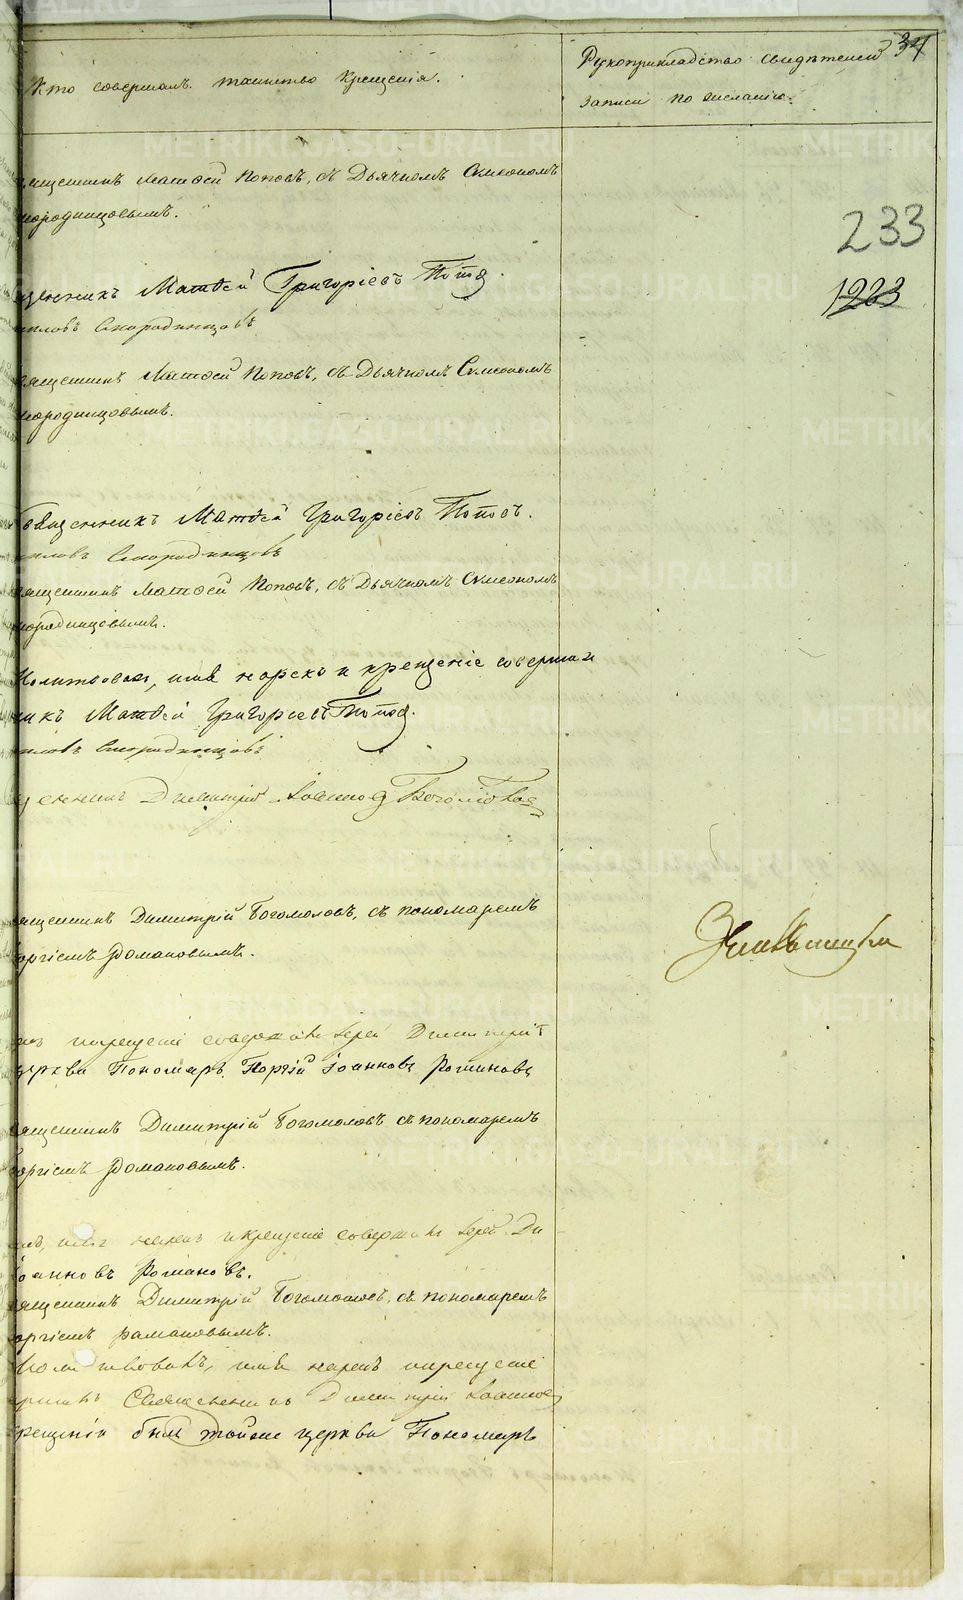 Кто совершалъ таинство крещенія.
Рукоприкладство свидѣтелей
записи по желанію.
34
233
1223
ященникъ Матвей Поповъ, съ Дьячкомъ Симеономъ
мородинцовымъ.
щенникъ Матвей Григоріевъ Попов
Смородинцовъ
ященникъ Матвей Поповъ, съ Дьячкомъ Симеономъ
мородинцовымъ.
Священникъ Матвей Григоріевъ Поповъ.
Смородинцовъ
ященникъ Матвей Поповъ, съ Дьячкомъ Симеономъ
мородинцовымъ.
Молитвовалъ, имя нарекъ и крещеніе совершил
никъ Матвей Григориевъ Попов.
Смородинцовъ
щенникъ Димитрій Іоанновъ Боголюбов
ященникъ Димитрій Богомоловъ, съ пономаремъ
оргіемъ Романовымъ.
крещеніе совершалъ Іерей Димитрій
церкви Пономарь Георгій Іоанновъ Романовъ
ященникъ Димитрій Богомоловъ съ пономаремъ
оргіемъ Романовымъ.
имя нарекъ и крещеніе совершалъ Іерей Ди
Іоанновъ Романовъ.
ященникъ Димитрій Богомоловъ, съ пономаремъ
оргіемъ Рамановымъ.
Молитвовалъ, имя нарекъ и крещеніе
Священникъ Димитрій Іоаннов
рещеніи былъ тойже церкви Пономарь